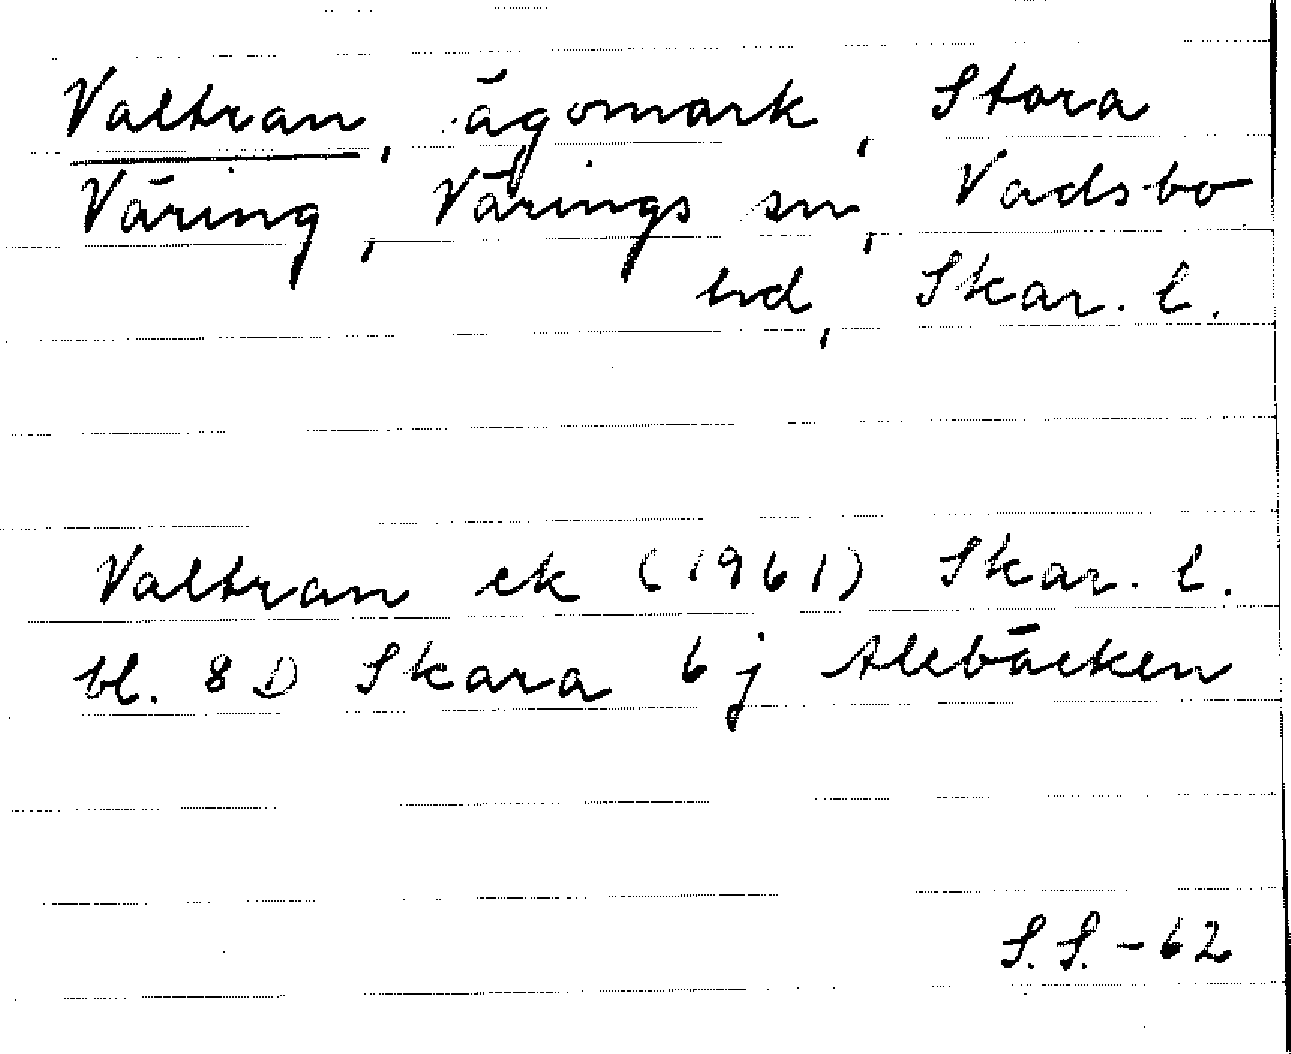 Valtran, ägomark, Stora
Väring, Värings sn, Vadsbo
hd, Skar. l.
Valtran ek (1961) Skar. l.
bl. 8 D Skara 6 j Alebäcken
S.S.-62